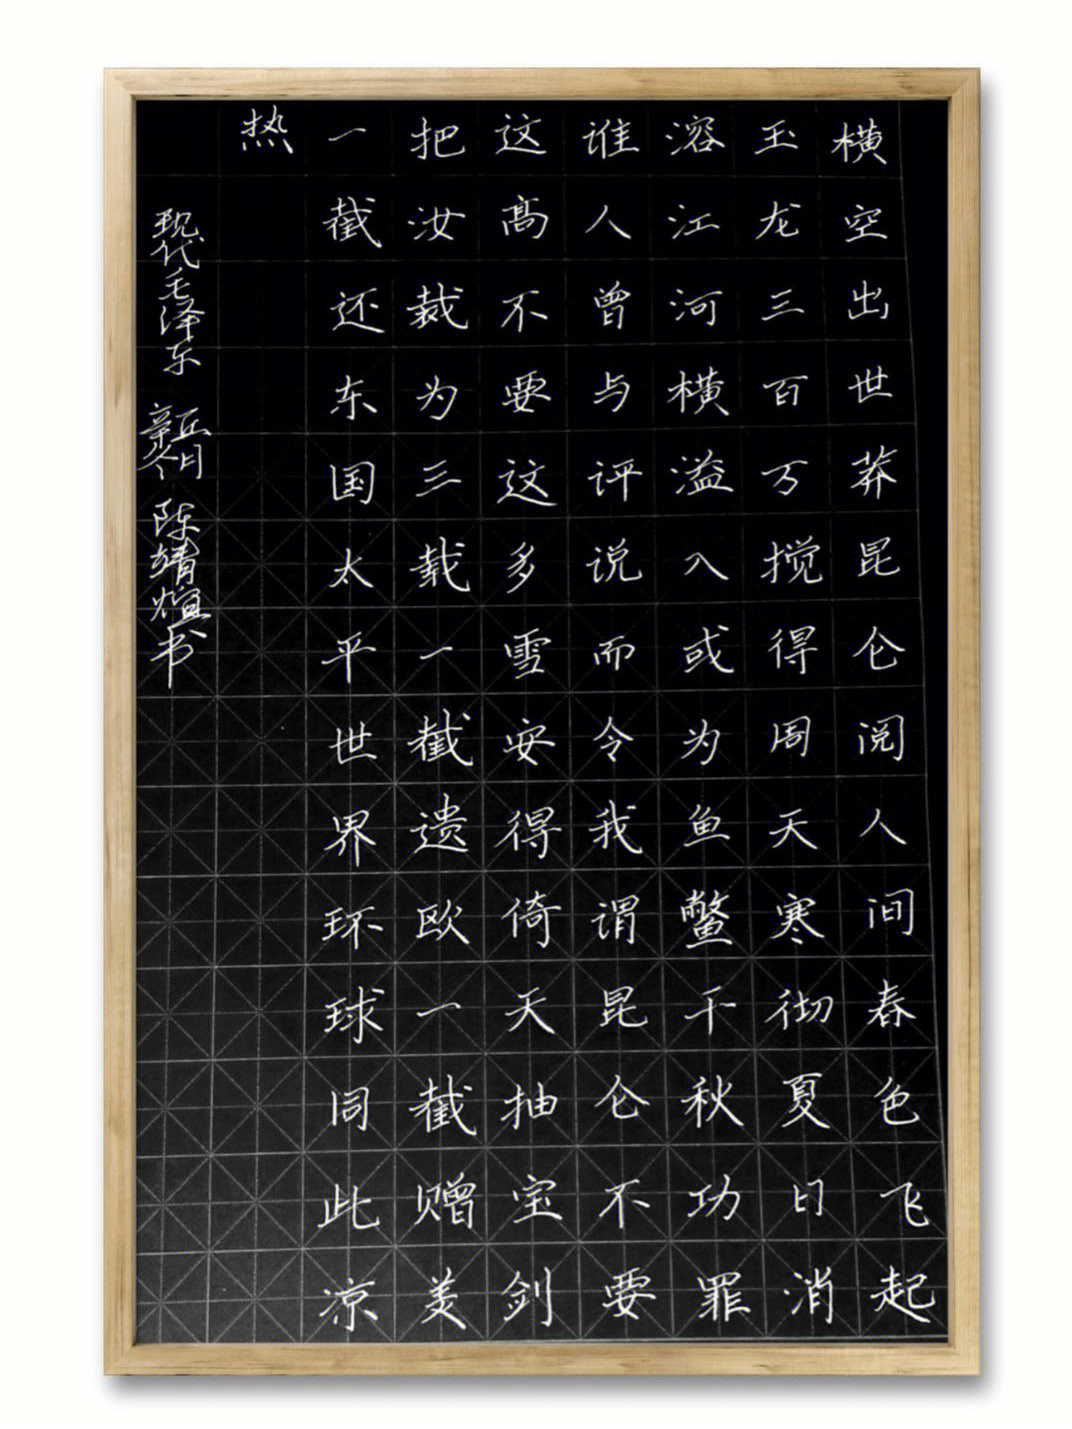 横空出世莽昆仑阅人间春色飞起
玉龙三百万搅得周天寒彻夏日消
溶江河横溢人或为鱼鳖千秋功罪
谁人曾与评说而今我谓昆仑不要
这高不要这多雪安得倚天抽宝剑
把汝裁为三截一截遗欧一截赠美
一截还东国太平世界环球同此凉
热
现代毛泽东 陈靖书